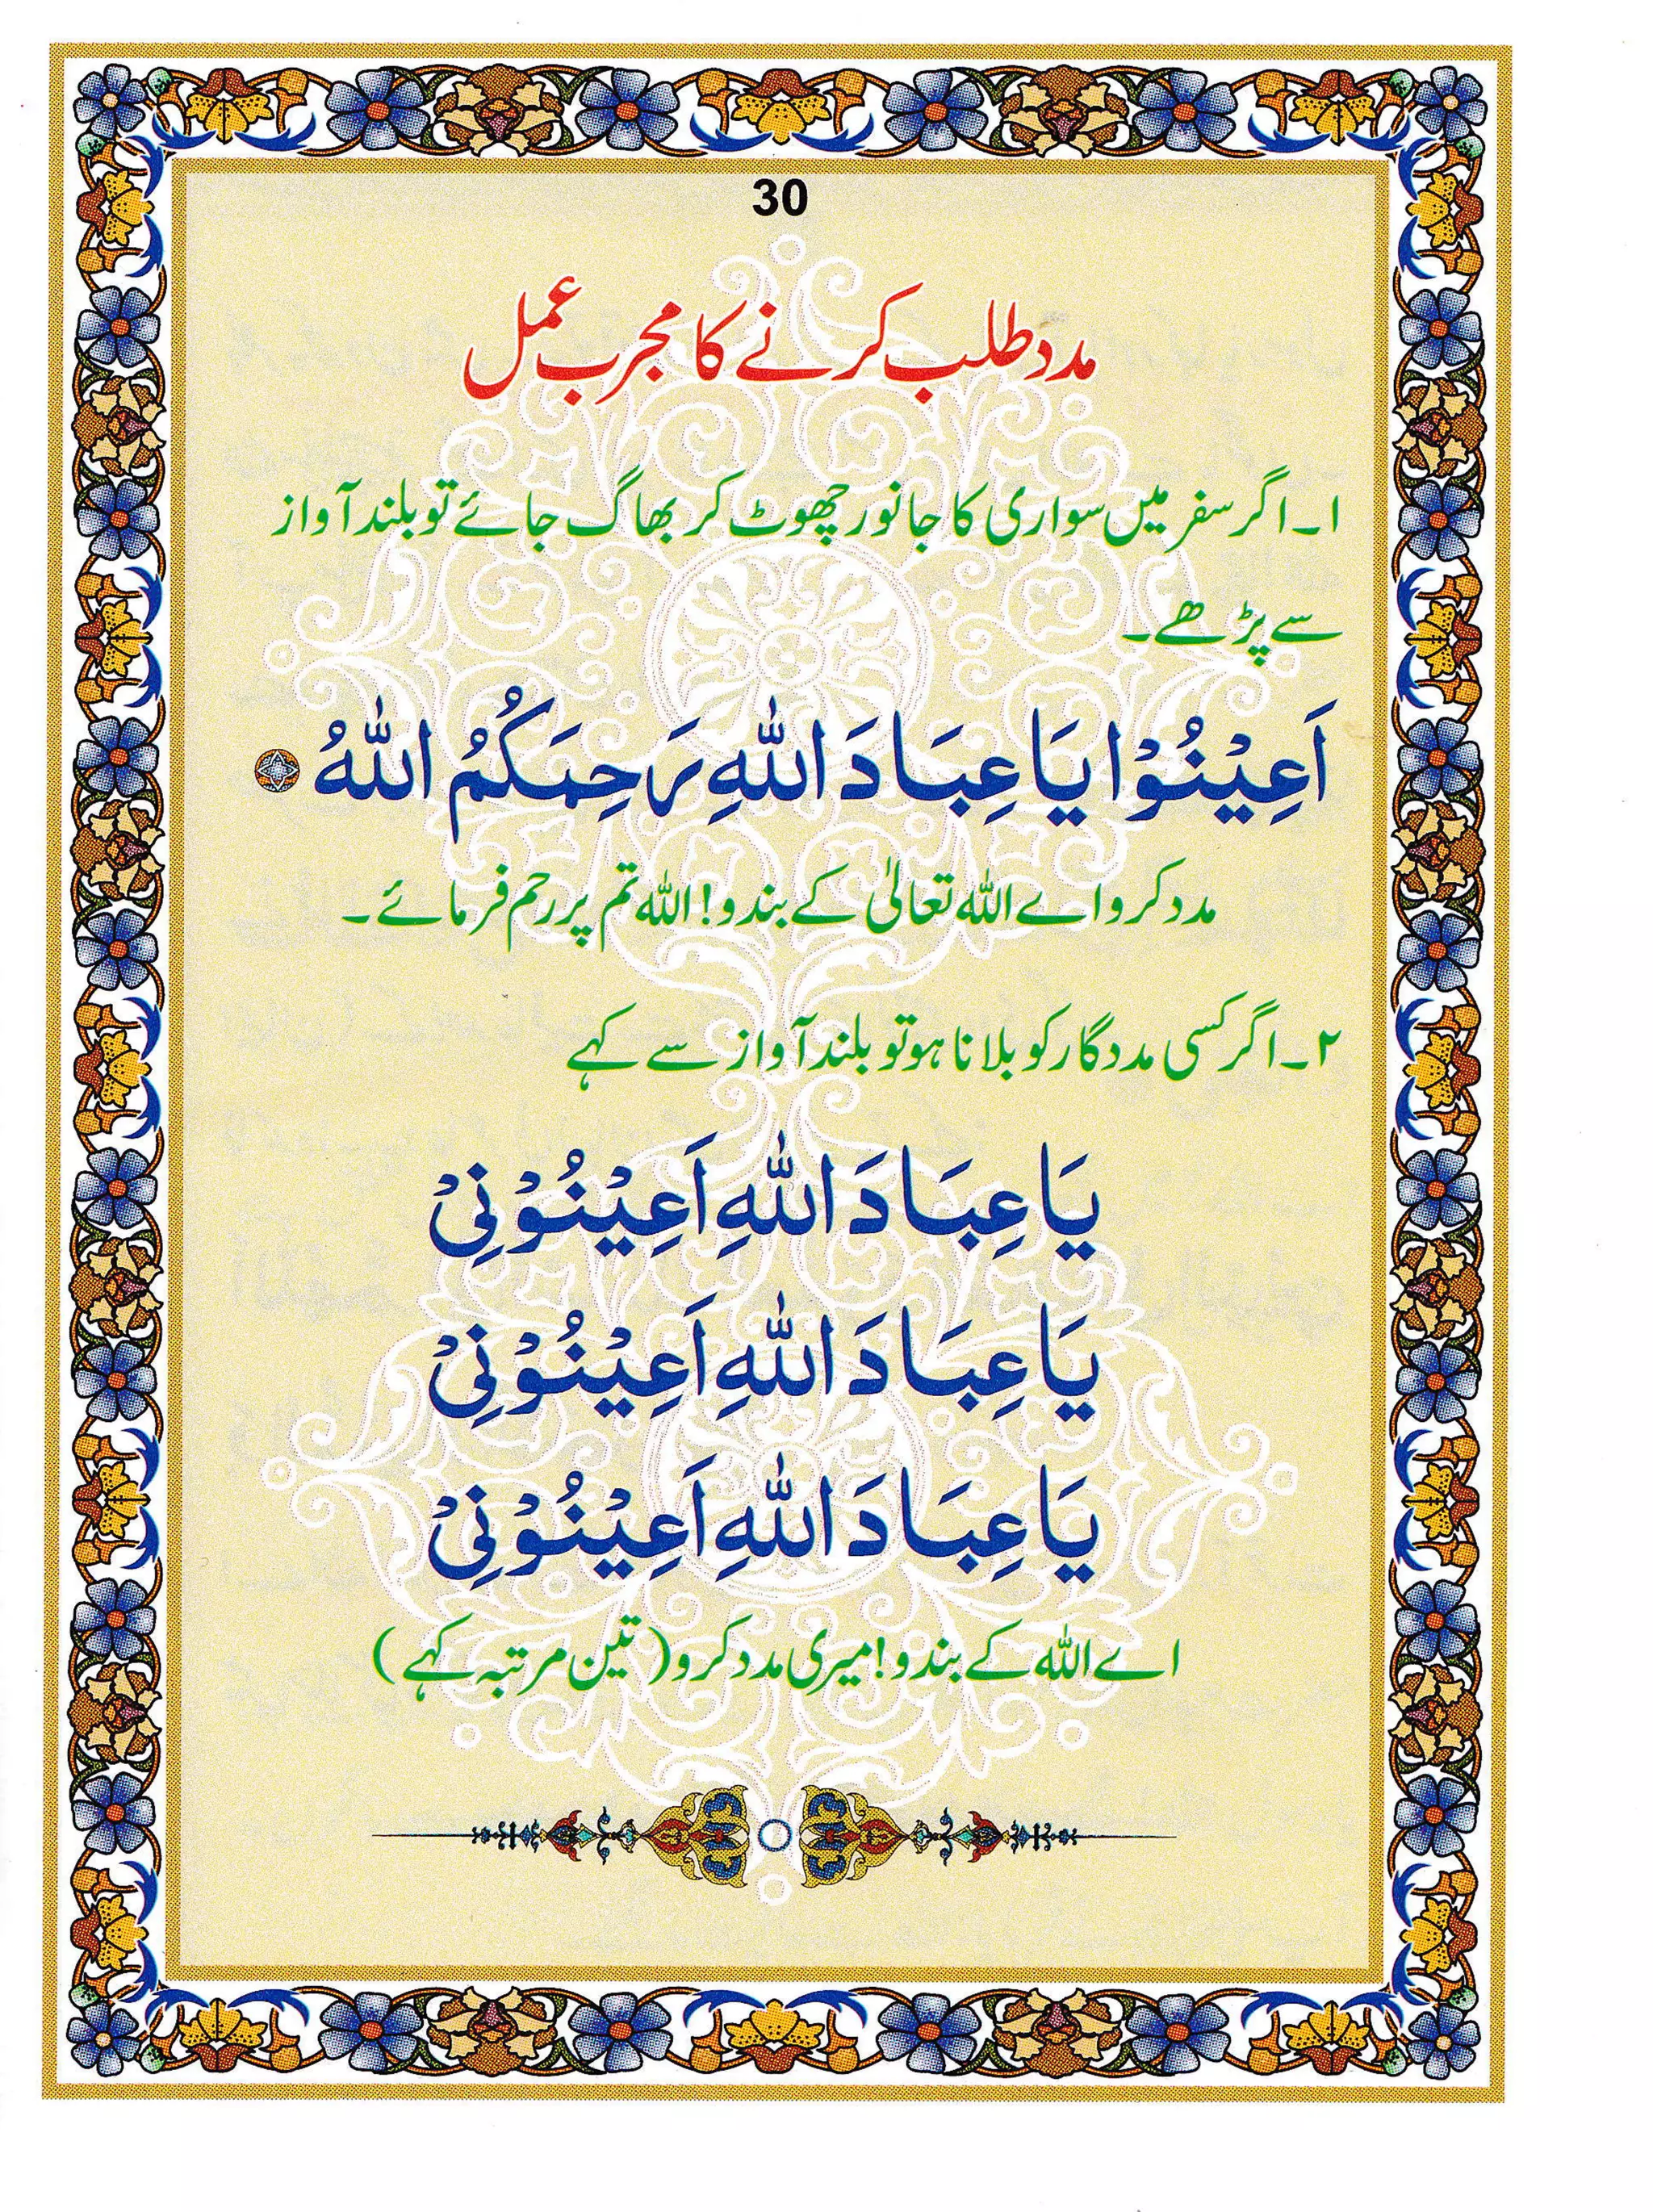 30
مدد طلب کرنے کا مجرب عمل
۱۔ اگر سفر میں سواری کا جانور چھوٹ کر بھاگ جائے تو بلند آواز
سے پڑھے۔
اَعِيْنُوْا يَا عِبَادَ اللّٰهِ رَحِمَكُمُ اللّٰهُ
مدد کرو اے اللہ تعالیٰ کے بندو! اللہ تم پر رحم فرمائے۔
۲۔ اگر کسی مددگار کو بلانا ہو تو بلند آواز سے کہے
يَا عِبَادَ اللّٰهِ اَعِيْنُوْنِيْ
يَا عِبَادَ اللّٰهِ اَعِيْنُوْنِيْ
يَا عِبَادَ اللّٰهِ اَعِيْنُوْنِيْ
اے اللہ کے بندو! میری مدد کرو (تین مرتبہ کہے)